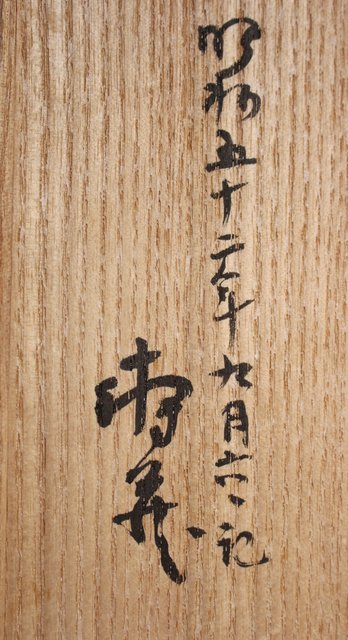 昭和五十二年九月六日記
義